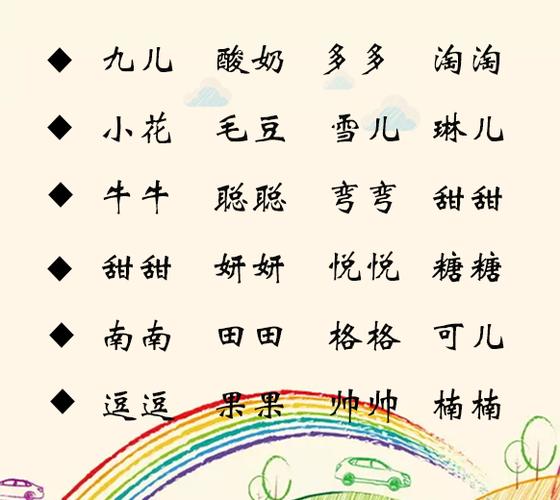 ◆ 九儿 酸奶 多多 淘淘
◆ 小花 毛豆 雪儿 琳儿
◆ 牛牛 聪聪 弯弯 甜甜
◆ 甜甜 妍妍 悦悦 糖糖
◆ 南南 田田 格格 可儿
◆ 逗逗 果果 帅帅 楠楠